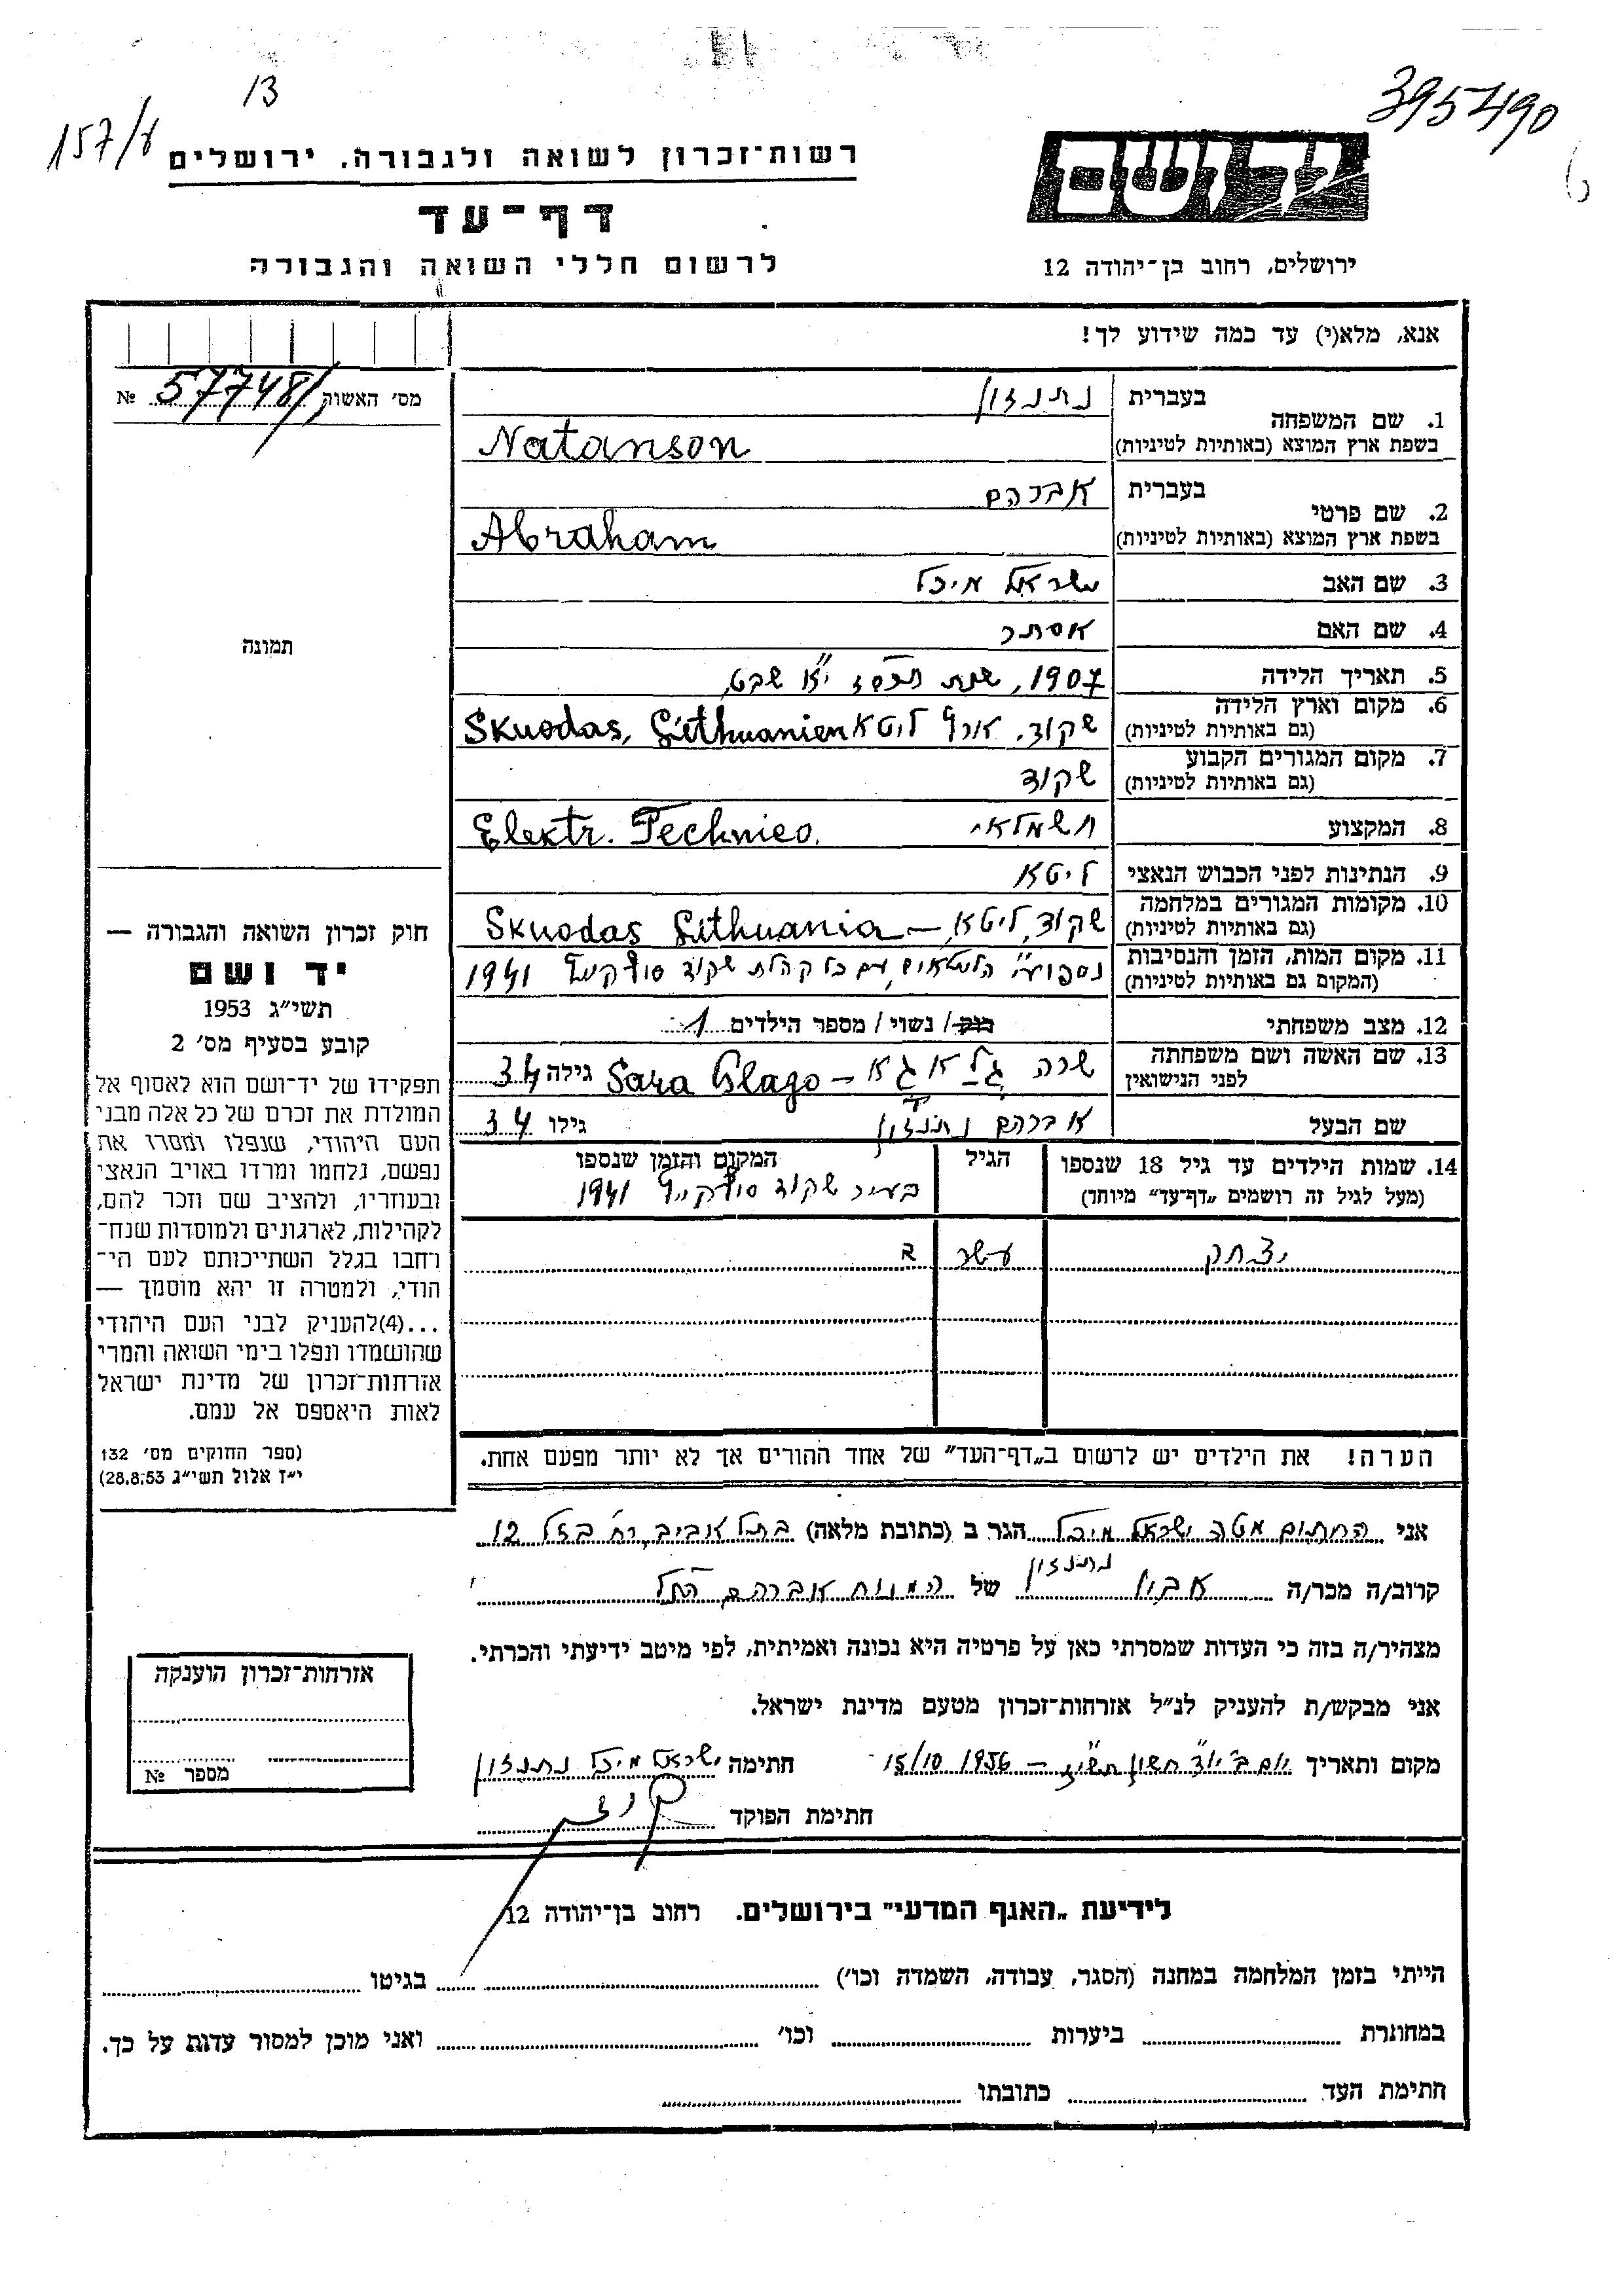 13
157/ע
395490
רשות־זכרון לשואה ולגבורה. ירושלים
דף־עד
לרשום חללי השואה והגבורה
יד ושם
ירושלים, רחוב בן־יהודה 12
אנא, מלא(י) עד כמה שידוע לך!
מס׳ האשוק 57748/ №
תמונה
1. שם המשפחה בעברית נתנזון
בשפת ארץ המוצא (באותיות לטיניות) Natanson
2. שם פרטי בעברית אברהם
בשפת ארץ המוצא (באותיות לטיניות) Abraham
3. שם האב ישראל מיכל
4. שם האם אסתר
5. תאריך הלידה 1907, שנת תרס״ז י״א שבט
6. מקום וארץ הלידה
(גם באותיות לטיניות) שקוד, ארץ ליטא Skuodas, Lithuanien
7. מקום המגורים הקבוע
(גם באותיות לטיניות) שקוד
8. המקצוע חשמלאי Elektr. Technico.
9. הנתינות לפני הכבוש הנאצי ליטא
10. מקומות המגורים במלחמה
(גם באותיות לטיניות) שקוד, ליטא, – Skuodas Lithuania
11. מקום המות, הזמן והנסיבות
(המקום גם באותיות לטיניות) נספו ע״י הליטאים, עם כל קהלת שקוד סוף קיץ 1941
12. מצב משפחתי רוק/ נשוי/ מספר הילדים 1
13. שם האשה ושם משפחתה
לפני הנישואין שרה גלאגא – Sara Glago גילה 34
שם הבעל אברהם נתנזון גילו 34
14. שמות הילדים עד גיל 18 שנספו הגיל המקום והזמן שנספו
(מעל לגיל זה רושמים „דף־עד״ מיוחד) בעיר שקוד סוף קיץ 1941
יצחק עשר
הערה! את הילדים יש לרשום ב„דף־העד״ של אחד ההורים אך לא יותר מפעם אחת.
חוק זכרון השואה והגבורה —
יד ושם
תשי״ג 1953
קובע בסעיף מס׳ 2
תפקידו של יד־ושם הוא לאסוף אל
המולדת את זכרם של כל אלה מבני
העם היהודי, שנפלו ומסרו את
נפשם, נלחמו ומרדו באויב הנאצי
ובעוזריו, ולהציב שם וזכר להם,
לקהילות, לארגונים ולמוסדות שנח־
רחבו בגלל השתייכותם לעם הי־
הודי, ולמטרה זו יהא מוסמך —
...(4)להעניק לבני העם היהודי
שהושמדו ונפלו בימי השואה והמרי
אזרחות־זכרון של מדינת ישראל
לאות היאספם אל עמם.
(ספר החוקים מס׳ 132
י״ז אלול תשי״ג 28.8.53)
אני החתום מטה ישראל מיכל הגר ב (כתובת מלאה) בתל אביב רח׳ בזל 12
נתנזון
קרוב/ה מכר/ה אביו של המנוח אברהם הנ״ל
מצהיר/ה בזה כי העדות שמסרתי כאן על פרטיה היא נכונה ואמיתית, לפי מיטב ידיעתי והכרתי.
אני מבקש/ת להעניק לנ״ל אזרחות־זכרון מטעם מדינת ישראל.
מקום ותאריך יום ב׳ יו״ד חשון תשי״ז – 15/10 1956 חתימה ישראל מיכל נתנזון
חתימת הפוקד
אזרחות־זכרון הוענקה
מספר №
לידיעת „האגף המדעי״ בירושלים. רחוב בן־יהודה 12
הייתי בזמן המלחמה במחנה (הסגר, עבודה, השמדה וכו׳) בגיטו
במחתרת ביערות וכו׳ ואני מוכן למסור עדות על כך.
חתימת העד כתובתו